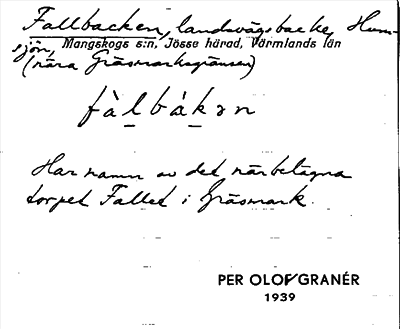 Fallbacken, landsvägsbacke, Hum-
sjön, Mangskogs s:n, Jösse härad, Värmlands län
(nära Gräsmarksgränsen)
fàlbákən
Har namn av det närbelägna
torpet Fallet i Gräsmark.
PER OLOF GRANÉR
1939